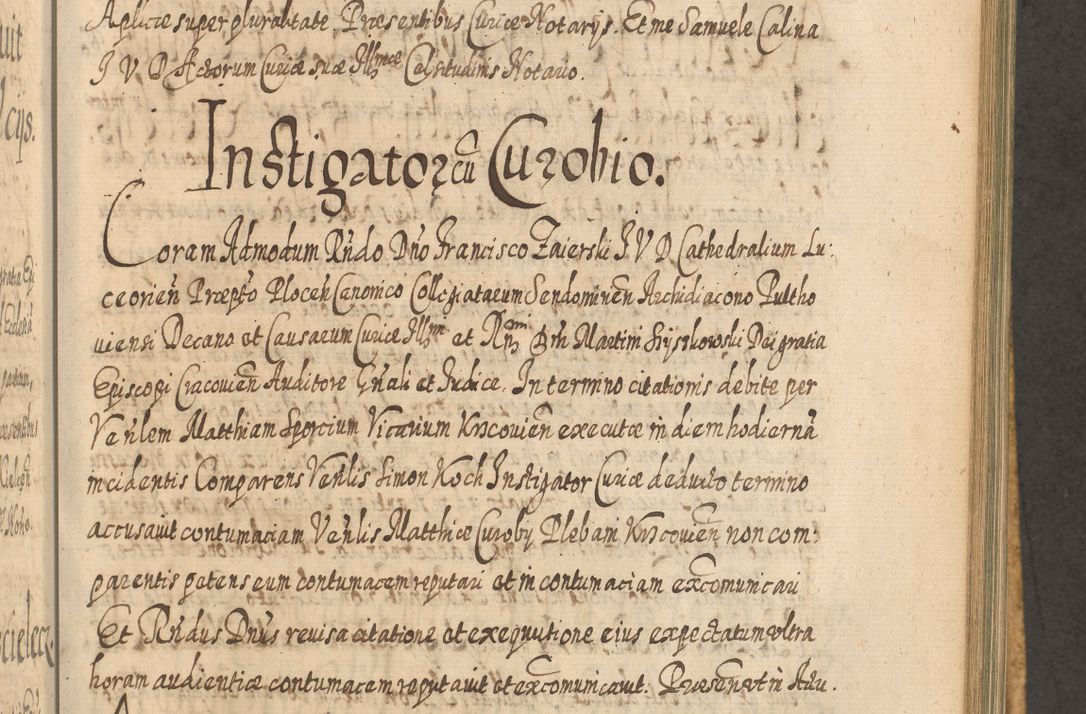 Aplicæ super pluralitate. Præsentibus Curiæ Notarijs. Et me Samuele Calina
J V D Actorum Curiæ suæ Illmæ Celsitudinis Notario.
Instigator cũ Curobio.
Coram Admodum Rñdo Dño Francisco Zaierski J V D Cathedralium Lu:
ceorieñ Præpto Plocen̄ Canonico Collegiatarum Sendomireñ Archidiacono Pultho
viensi Decano et Causarum Curiæ Illm et Rm Dñi Martini Szyszkowski Dei gratia
Episcopi Cracovieñ Auditore Gñali et Judice. In termino citationis debite per
Veñlem Matthiam Sporcium Vicarium Krscovieñ executæ in diem hodiernã
incidentis Comparens Veñlis Simon Koch Instigator Curiæ deducto termino
accusavit contumaciam Veñlis Matthiæ Curobij Plebani Krscovieñ non com:
parentis petens eum contumacem reputari et in contumaciam excomunicari
Et Rñdus Dñus revisa citatione et exequutione eius expectatum ultra
horam audientiæ contumacem reputavit et excomunicavit. Præsen